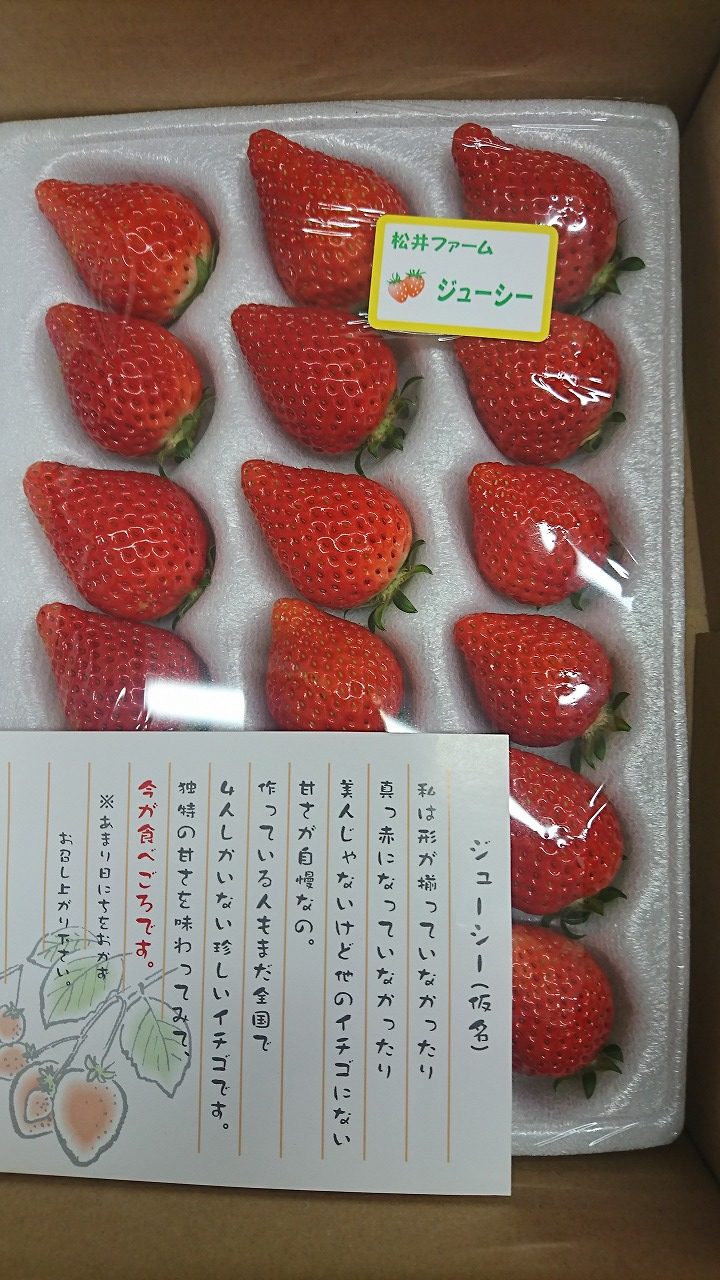 松井ファーム
ジューシー
ジューシー(仮名)
私は形が揃っていなかったり
真っ赤になっていなかったり
美人じゃないけど他のイチゴにない
甘さが自慢なの。
作っている人もまだ全国で
4人しかいない珍しいイチゴです。
独特の甘さを味わってみて、
今が食べごろです。
※あまり日にちをおかず
お召し上がり下さい。